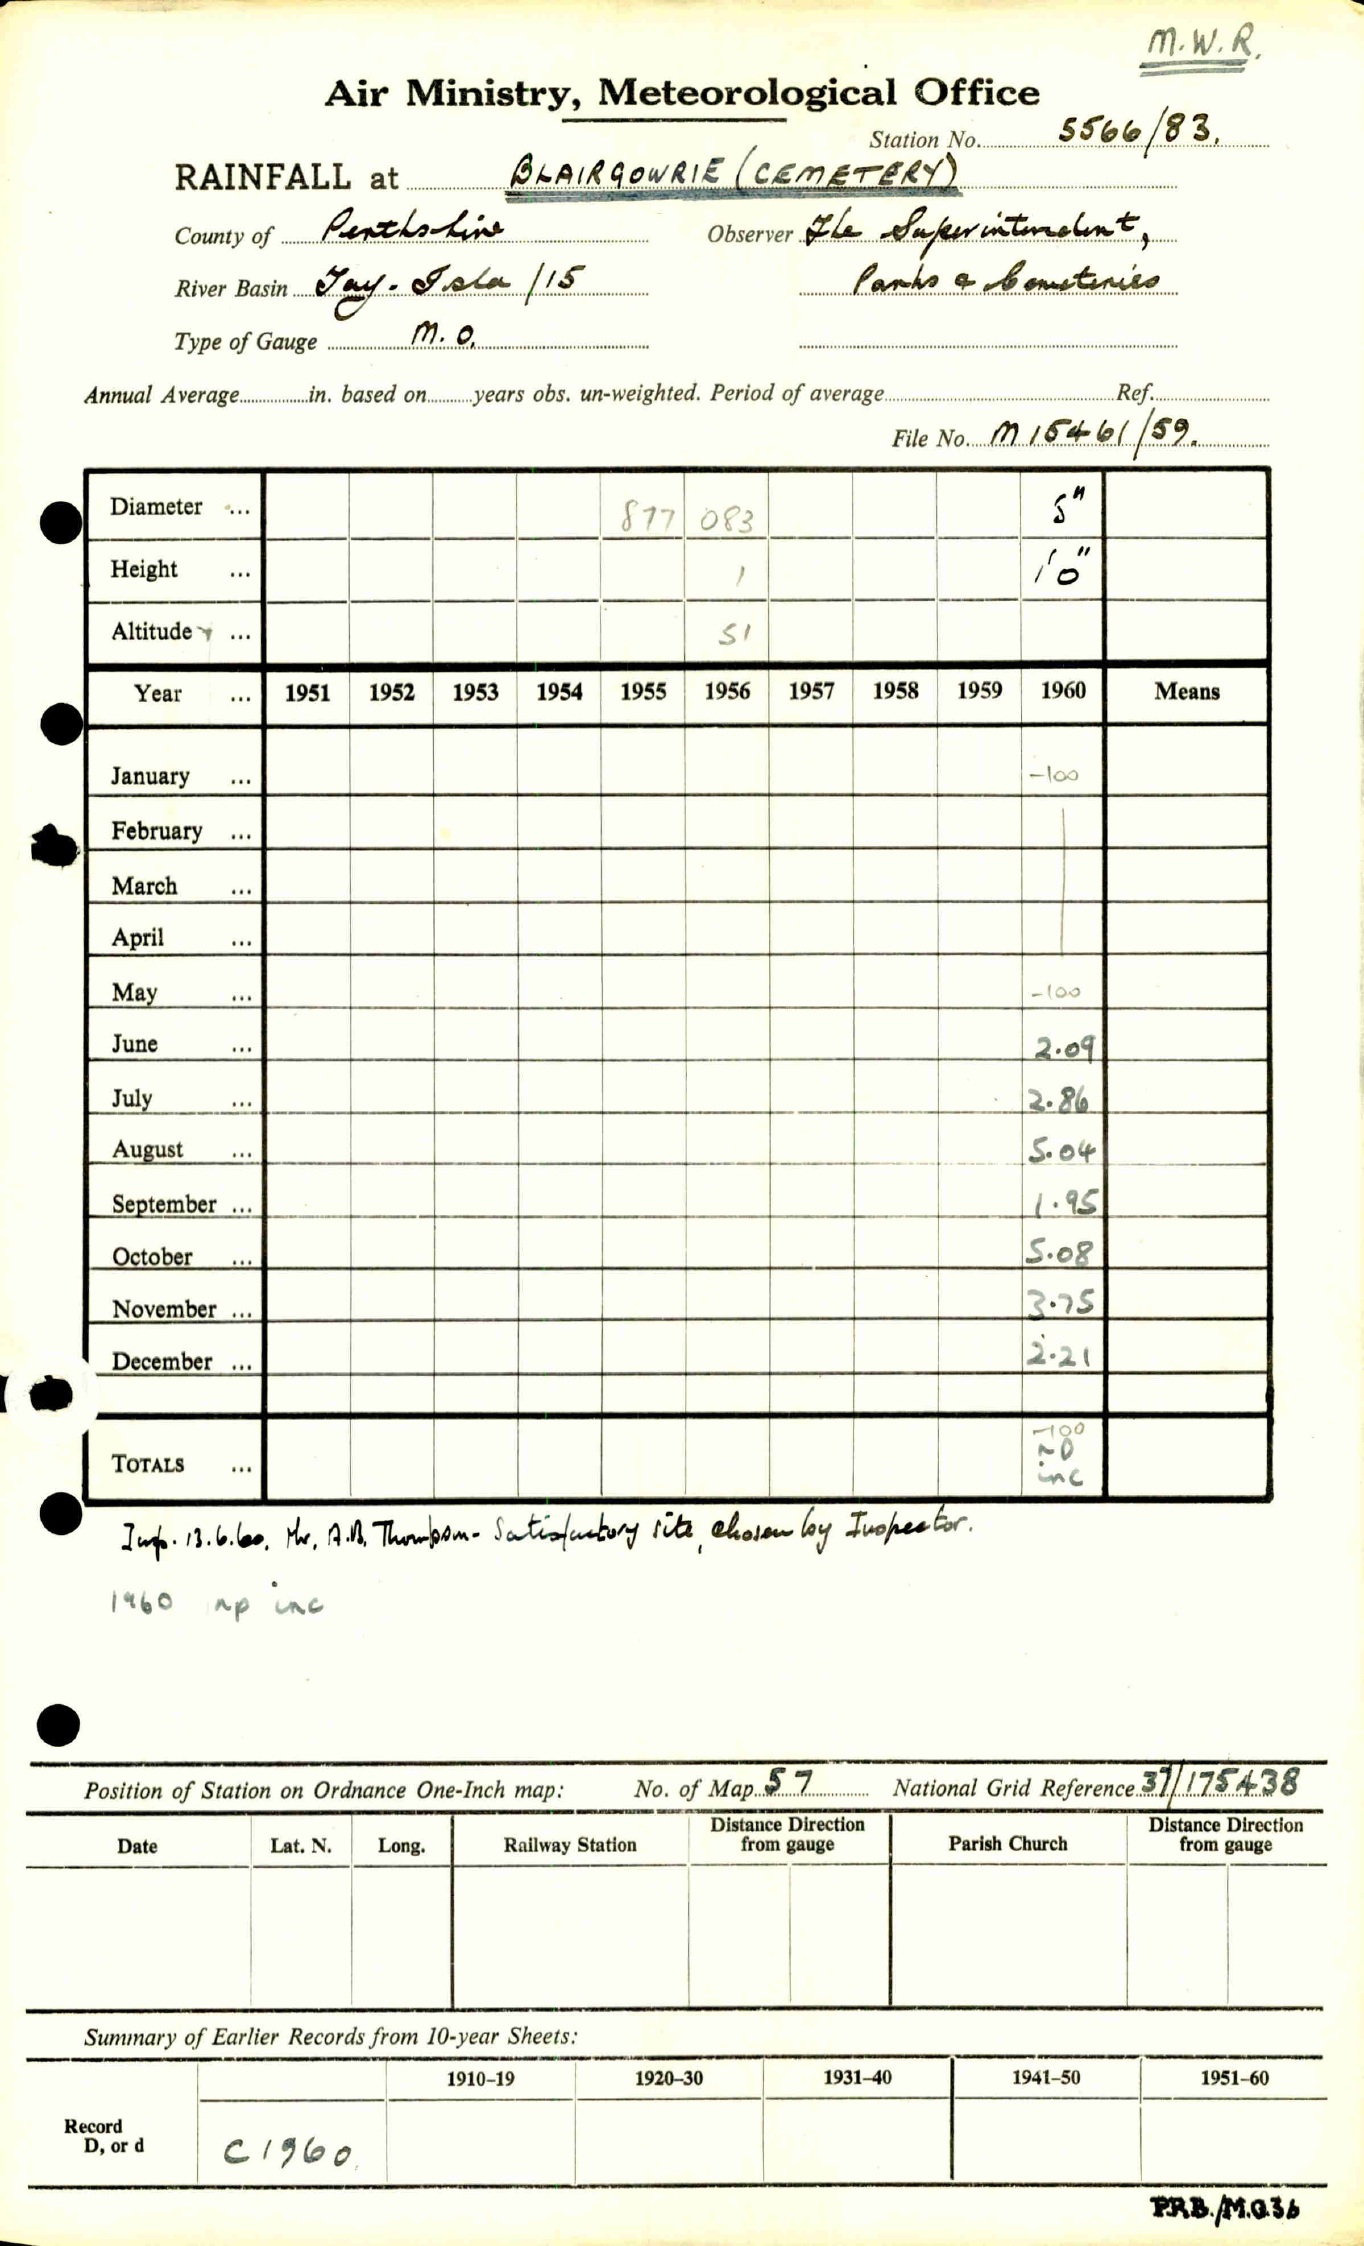 M.W.R.
Air Ministry, Meteorological Office
Station No. 5566/83.
RAINFALL at BLAIRGOWRIE (CEMETERY)
County of Perthshire Observer The Superintendent,
River Basin Tay-Isla /15 Parks & Cemeteries
Type of Gauge M.O.
Annual Average in. based on years obs. un-weighted. Period of average Ref.
File No. M 15461/59.
Diameter ... 877 083 5"
Height ... 1 1'0"
Altitude ... 51
Year ... 1951 1952 1953 1954 1955 1956 1957 1958 1959 1960 Means
January ... -100
February ...
March ...
April ...
May ... -100
June ... 2.09
July ... 2.86
August ... 5.04
September ... 1.95
October ... 5.08
November ... 3.75
December ... 2.21
-100
TOTALS ... np
inc
Insp. 13.6.60. Mr. A.B. Thompson - Satisfactory site, chosen by Inspector.
1960 np inc
Position of Station on Ordnance One-Inch map: No. of Map 57 National Grid Reference 37/175438
Date Lat. N. Long. Railway Station Distance Direction from gauge Parish Church Distance Direction from gauge
Summary of Earlier Records from 10-year Sheets:
1910-19 1920-30 1931-40 1941-50 1951-60
Record
D, or d C1960
P.R.B./M.O.36